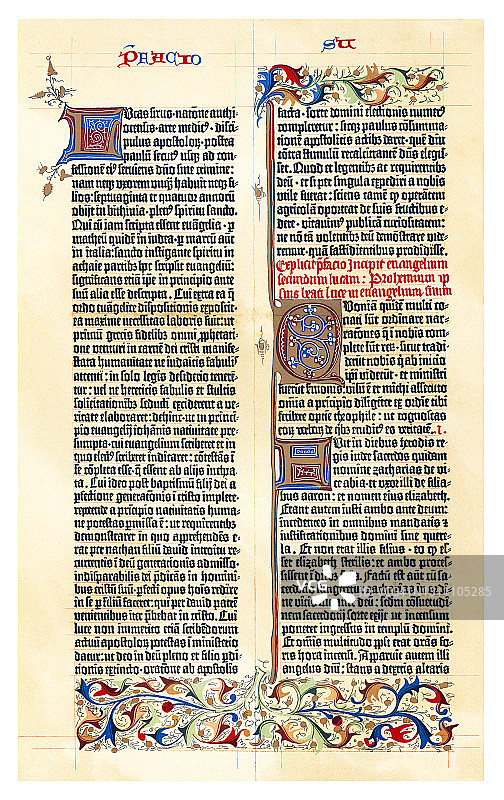 PFACIO
SU
Lucas sirus · natiōe anthi
ocensis · arte medic9 · disci
pulus apostoloꝝ · postea
paulū secut9 usqꝫ ad con
fessionē ei9 serviens dño sine crimine:
nam neqꝫ uxorem unqꝫ habuit neqꝫ fi-
lios: septuaginta et quatuor annorū
obijt in bithinia · plen9 spiritu sancto.
Qui cū iam scripta essent euāgelia · ꝑ
matheū quidē in iudea · ꝑ marcū aūt
in italia: sancto instigante spiritu in
achaie partibꝫ hoc scripsit euangeliū:
significans etiā ipe in principio ante
suū alia esse descripta. Cui extra ea q̄
ordo euāgelice dispositionis exposcit·
ea maxime necessitas laboris fuit: ut
primū grecis fidelibꝫ omni ꝓphetati-
one venturi in carnē dei cristi manife-
stata humanitate ne iudaicis fabulis
attenti: in solo legis desiderio teneren-
tur: vel ne hereticis fabulis et stultis
solicitationibꝫ seducti exciderent a ve-
ritate elaboraret: dehinc ut in princi-
pio euangelij iohānis nativitate pre-
sumpta · cui euangelium scriberet et in
quo elect9 scriberet indicaret: cōtestās ī
se cōpleta esse · q̄ essent ab alijs inchoa-
ta. Cui ideo post baptismū filij dei a
ꝑfectione generatiōis ī cristo implete ·
repetende a principio nativitatis huma-
ne potestas ꝑmissa ē: ut requirentibꝫ
demonstraret in quo apprehendēs e-
rat per nathan filiū david introitu re-
currentis ī deū generationis admisso ·
indisparabilis dei ꝑdicās in homini-
bus cristū suū · ꝑfecti opus hoīs redire
in se ꝑ filiū faceret: qui per david patrē
venientibus iter p̄bebat in cristo. Cui
luce non immerito etiā scribēdorum
actuū apostoloꝝ potestas ī ministerio
datur: ut deo in deū pleno et filio pdi-
tionis extincto · oratiōne ab apostolis
facta · sorte domini electionis numer9
compleretur: sicqꝫ paulus cōsumma-
tionē apostolicis actibꝫ daret · quē diu
cōtra stimulū recalcitrantē dñs elegis-
set. Quod et legentibꝫ ac requirentibꝫ
deū · et si per singula expediri a nobis
utile fuerat: sciens tamē qꝫ operantem
agricolā oporteat de suis fructibus e-
dere · vitavim9 publicā curiositatem:
ne nō tā volentibꝫ deū demōstrare vide-
remur · quā fastidientibus prodidisse.
Explicit p̄facio Incipit euangelium
secundum lucam: Prohemium ip
sius beati luce in euangelium suum
Quoniā quidē multi co-
nati sūt ordinare nar-
rationes q̄ ī nobis com-
plete sūt reꝝ · sicut tradi-
derūt nobis q̄ ab inicio
ipī viderūt · et ministri
fuerūt sermonis: visū ē et michi assecuto
omnia a pricipio diligēter ex ordine tibi
scribere optie theophile: ut cognoscas
eoꝝ verboꝝ de qibꝫ erudit9 es veritatē. I.
Fuit in diebus herodis re-
gis iude sacerdos quidam
nomine zacharias de vi-
ce abia · et uxor illi de filia-
bus aaron: et nomen eius elizabeth.
Erant autem iusti ambo ante deum:
incedentes in omnibus mandatis et
iustificationibus domini sine quere-
la. Et non erat illis filius · eo qꝫ es-
set elizabeth sterilis: et ambo proces-
ponere ingressus in templū domini.
Et oīnis multitudo ppli erat orās fo-
ris hora incensi. Apparuit autem illi
angelus dñi: stans a dextris altaris
VCG